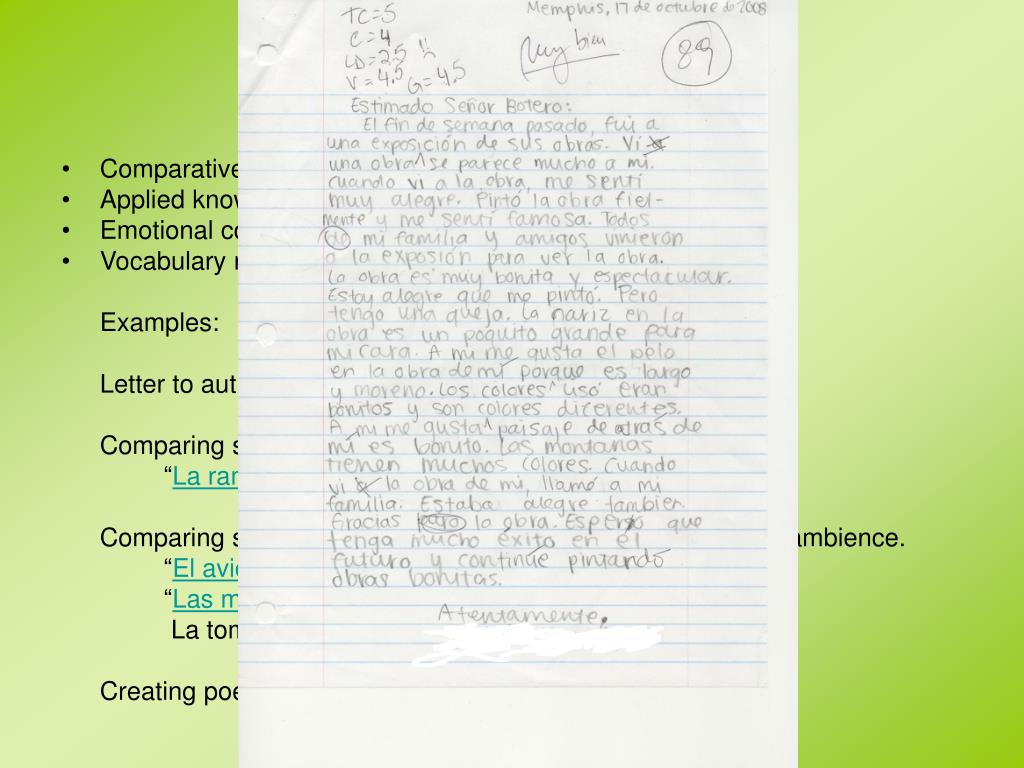 TC=5
C=4
LD=2.5 !!
V=4.5 G=4.5
Memphis, 17 de octubre de 2008
Muy bien
89
Estimado Señor Botero:
El fin de semana pasado, fui a
una exposición de sus obras. Vi a
una obra^ se parece mucho a mi.
cuando vi a la obra, me sentí
muy alegre. Pintó la obra fiel-
mente y me sentí famosa. Todos
de mi familia y amigos vinieron
a la exposión para ver la obra.
La obra es muy bonita y espectacular.
Estoy alegre que me pintó. Pero
tengo una queja. La nariz en la
obra es un poquito grande para
mi cara. A mi me gusta el pelo
en la obra de mí porque es largo
y moreno. Los colores^ usó eran
bonitos y son colores diferentes.
A mi me gusta^ paisaje de atrás de
mí es bonito. Las montañas
tienen muchos colores. Cuando
vi a la obra de mi, llamó a mi
familia. Estaba alegre tambien.
Gracias para la obra. Espero que
tenga mucho éxito en el
futuro y continúe pintando
obras bonitas.
Atentamente,
• Comparative
• Applied know
• Emotional co
• Vocabulary
Examples:
Letter to aut
Comparing s
“La ran
Comparing s ambience.
“El avio
“Las m
La tom
Creating poe